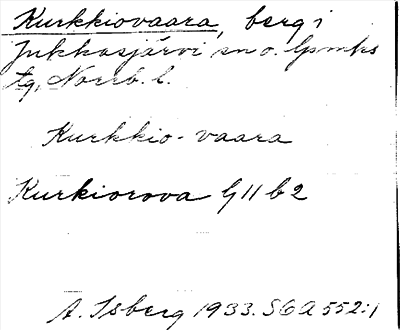 Kurkkiovaara, berg i
Jukkasjärvi sn o. lpmks
tg, Norrb. l.
Kurkkio-vaara
Kurkiorova G 11 b 2
A. Isberg 1933. SGA 552:1